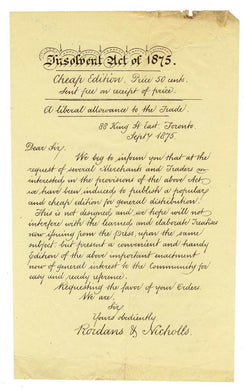 Insolvent Act of 1875.
Cheap Edition. Price 50 cents.
Sent free on receipt of price.
A liberal allowance to the Trade.
88 King St East, Toronto.
Sept 1875.
Dear Sir,
We beg to inform you that at the
request of several Merchants and Traders
interested in the provisions of the above Act,
we have been induced to publish a popular
and cheap edition for general distribution.
This is not designed, and we hope will not
interfere with the learned and elaborate Treatises
now issuing from the Press, upon the same
subject but present a convenient and handy
Edition of the above important enactment
now of general interest to the Community for
easy and ready reference.
Requesting the favor of your Orders.
We are,
Sir
Yours obediently,
Rordans & Nicholls.